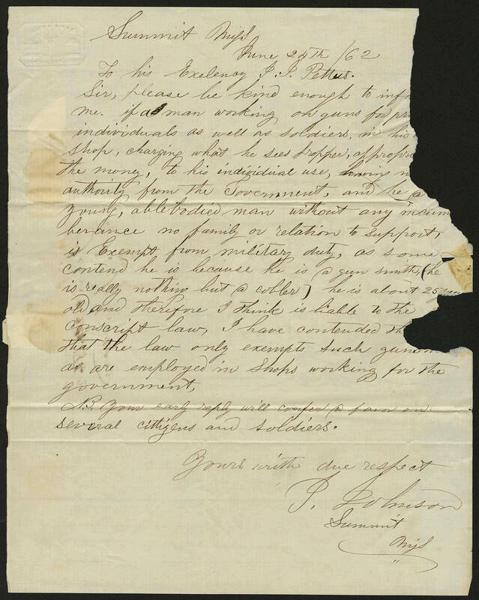 Summit Miss
June 25th /62
To his Exelency J. J. Pettus.
Sir, please be kind enough to inform
me. if a man working on guns for pr
individuals as well as soldiers, in his
shop, charging what he sees propper, appropri
the money, to his individual use, having n
authority from the Government, and he a
young, ablebodied man without any incum
berance no family or relation to support,
is Exempt from military duty, as some
contend he is because he is a gun smith, (he
is really nothing but a cobler) he is about 25
old and therefore I think is liable to the
Conscript law, I have contended th
that the law only exempts such gunsm
as are employed in shops working for the
government,
N.B. Your early reply will confer a favor on
several citizens and soldiers.
Yours with due respect
Johnson
Summit
Miss